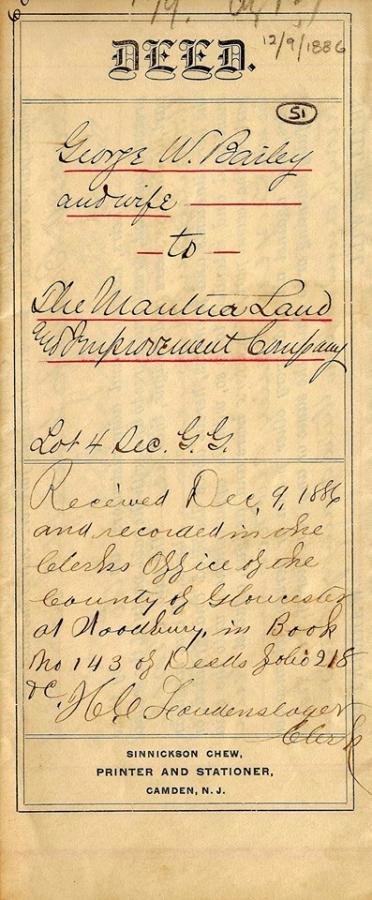 DEED.
12/9/1886
51
George W. Bailey
and wife
to
The Mantua Land
and Improvement Company
Lot 4 Sec. G.G.
Received Dec, 9, 1886
and recorded in the
Clerks Office of the
County of Gloucester
at Woodbury, in Book
No 143 of Deeds folio 218
&c.
Clerk
SINNICKSON CHEW,
PRINTER AND STATIONER,
CAMDEN, N. J.